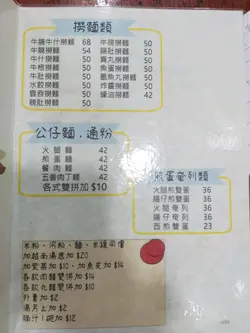 撈麵類
牛腩牛什撈麵 68
牛腩撈麵 54
牛什撈麵 50
牛根撈麵 50
牛肚撈麵 50
水餃撈麵 50
雲吞撈麵 50
豬肚撈麵 50
牛腩撈麵 50
腸肚撈麵 50
貢丸撈麵 50
魚蛋撈麵 50
墨魚丸撈麵 50
炸醬撈麵 50
蠔油撈麵 42
公仔麵.通粉
火腿麵 42
煎蛋麵 42
餐肉麵 42
五香肉丁麵 42
各式雙拼加$10
煎蛋奄列類
火腿煎雙蛋 36
腸仔煎雙蛋 36
火腿奄列 36
腸仔奄列 36
西煎雙蛋 23
米粉、河粉、麵、米線同價
加越南湯底 $20
加紫菜 $10、加魚皮 $14
各款肉麵雙拼加 $14
各款丸麵雙拼加 $10
外賣加 $2
湯另上加 $2